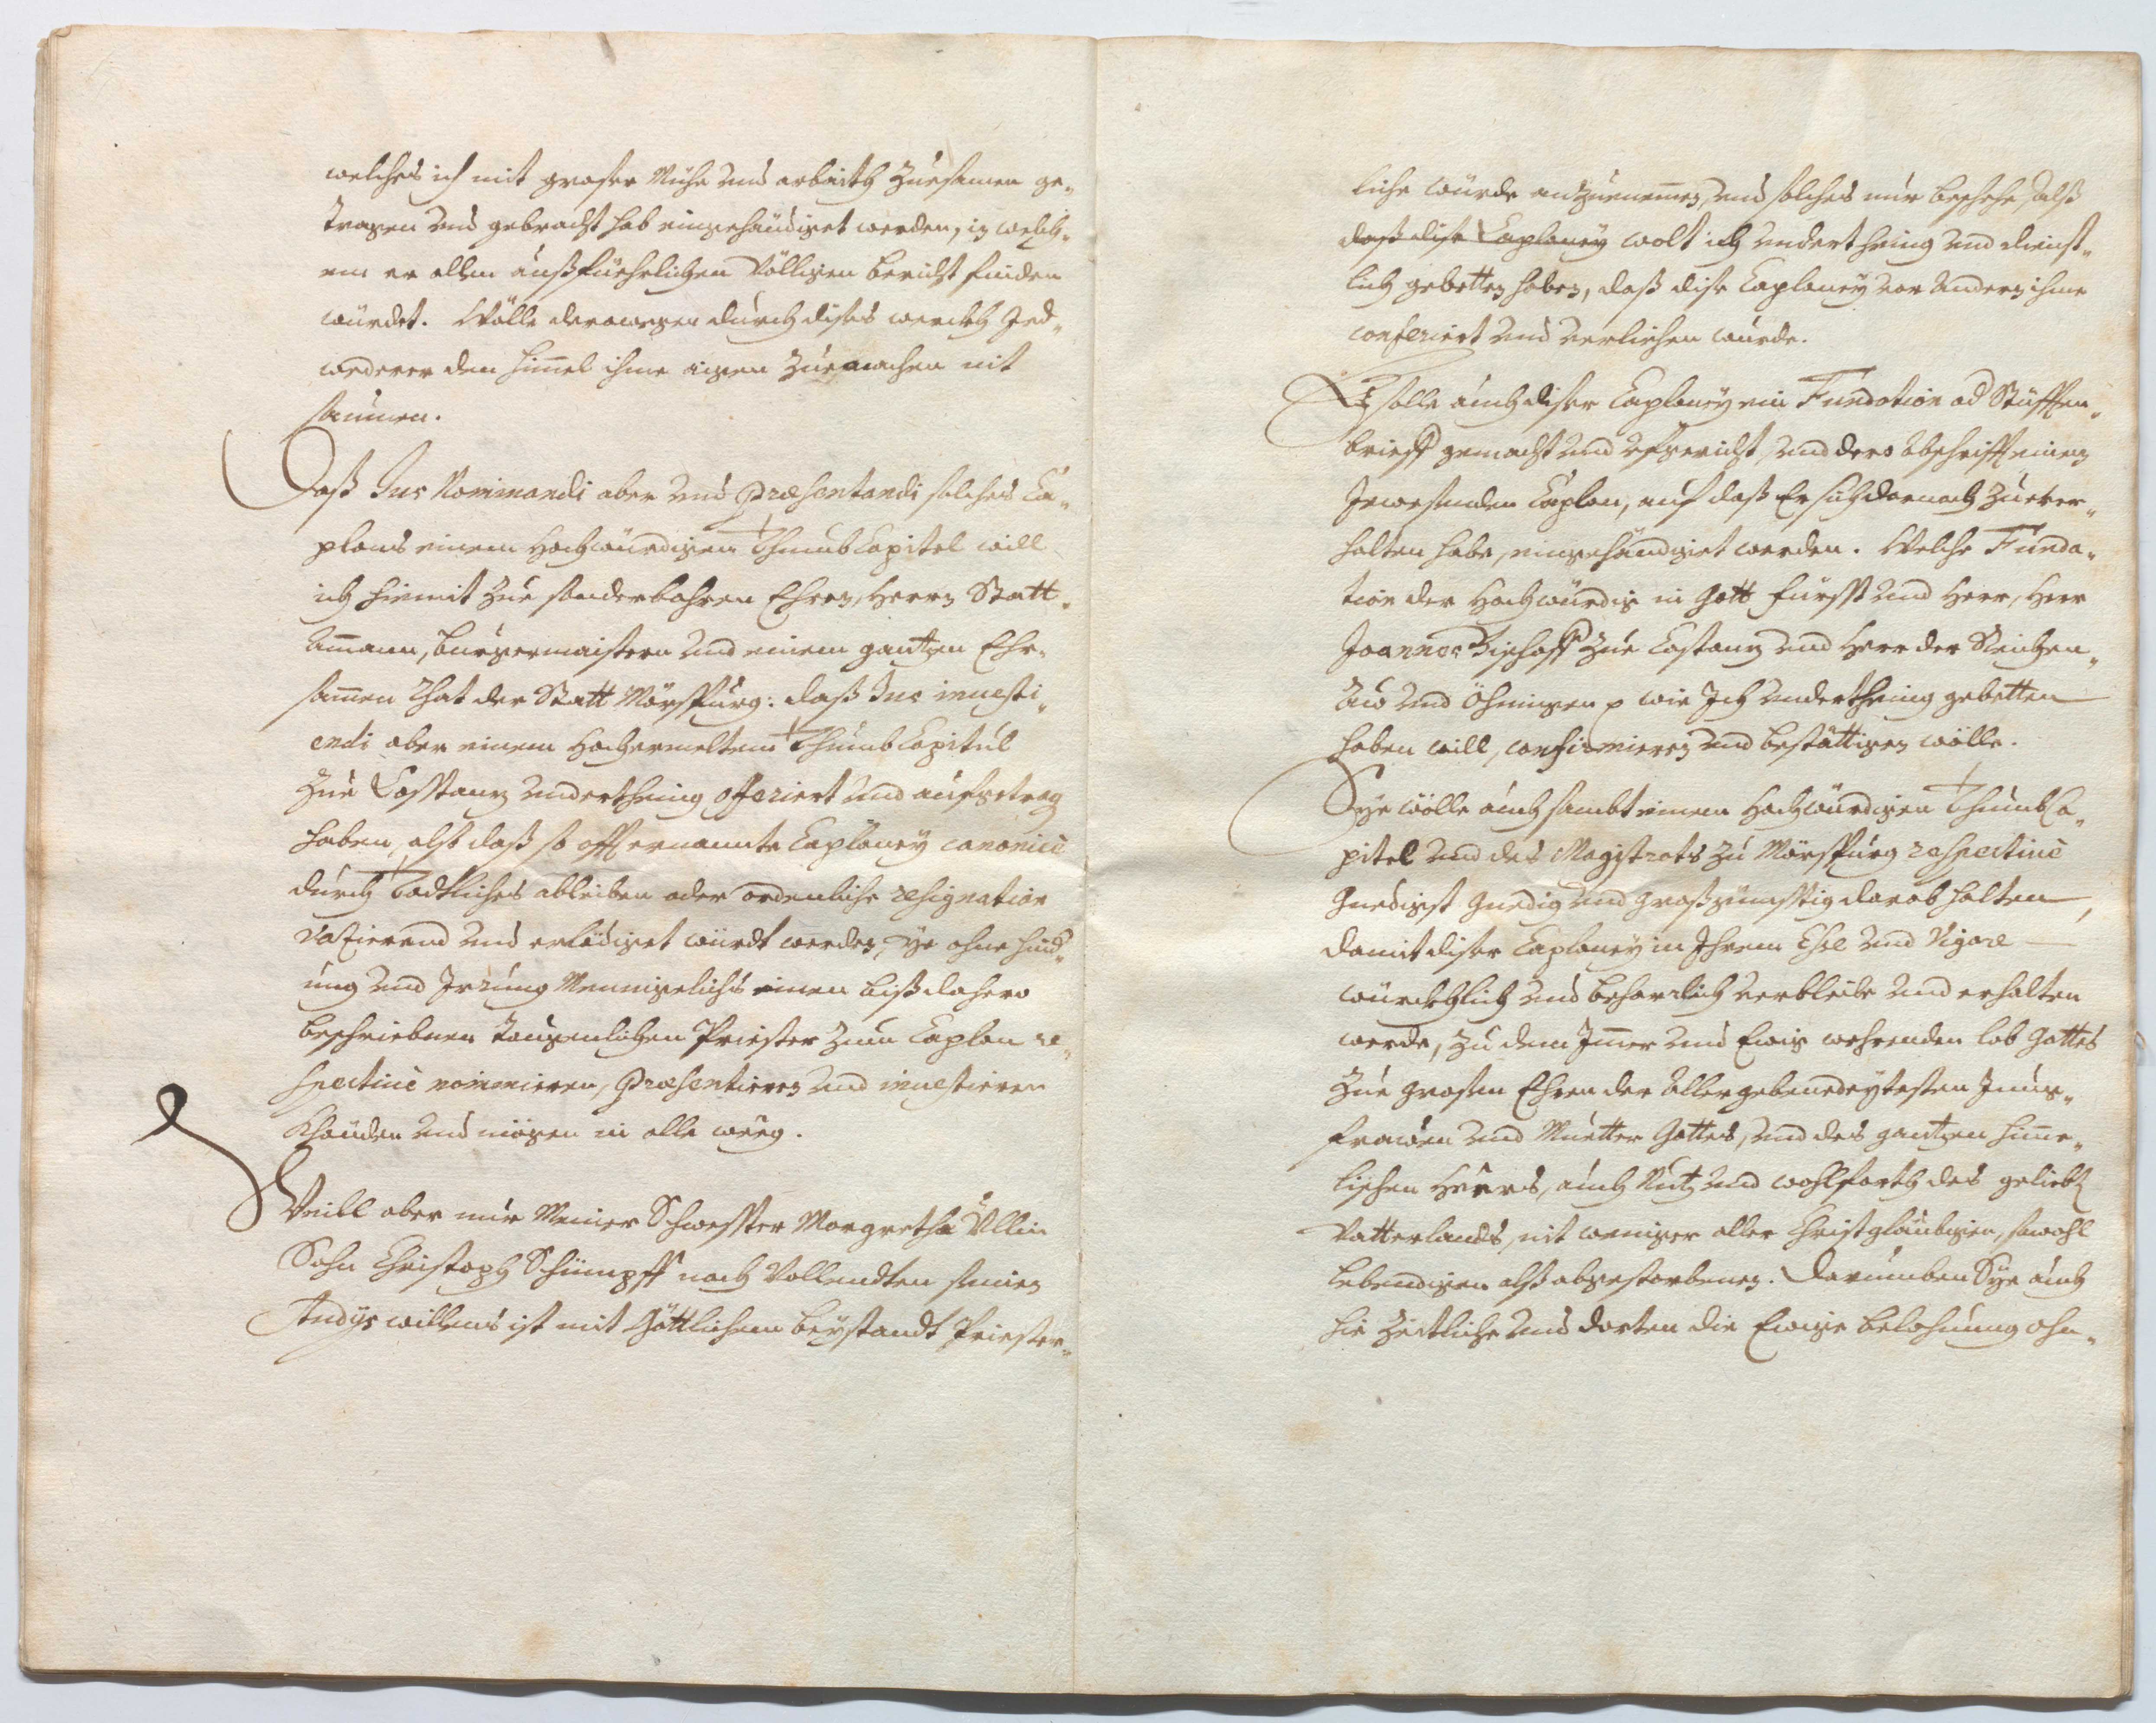 welches ich mit grosser Mühe und arbaith Zuesamen ge„
tragen und gebracht hab eingehändiget werden, in welch„
em er allen außfüehrlichen völligen bericht finden
würdet. Wölle derowegen durch dises werckh Jed„
wederer den himmel ihme aigen Zuemachen nit
saumen.
Daß Jus Nominandi aber und Præsentandi solches Ca„
plans einem Hochwürdigen ThumbCapitel will
ich hiemit Zue sonderbahren Ehren, Herrn Statt„
Ammann, Burgermaistern und einem gantzen Ehr„
sammen Rhat der Statt Mörspurg: daß Jus inuesti„
endi aber einem Hochermeltem ThumbCapitul
Zue Costanz underthenig offeriert und aufgetrag
haben, alß daß so offt ernannte Caploney canonicè
durch Todtliches ableiben oder ordenliche resignation
vacierend und erlediget würdt werden, sye ohne hind„
ung und Irrung Menniglichs einen bißdahero
beschriebnen taugenlichen Priester Zum Caplon re„
spectiuè nominieren, Præsentieren und inuestieren
Khönden und mögen in alle weeg.
Weill aber mir Meiner Schwester Margretha Ullin
Sohn Christoph Schimpff nach Vollendten seinen
studys willens ist mit Göttlichem beystandt Priester„
liche würde anzuenemmen, und solches nun beschehe, alß
daß dise Caploney wolt ich underthenig und dienst„
lich gebetten haben, daß dise Caploney vor Andern ihme
conferiert und verlichen wurde.
Es solle auch diser Caploney ein Fundation od Stüfften„
brieff gemacht und ufgericht, und dero Abschrifft einem
Jewesenden Caplon, auf daß Er sich darnach Zuever„
halten habe, eingehändiget werden. Welche Funda„
tion der Hochwürdig in Gott Fürsst und Herr, Herr
Joannes Bischoff Zue Costanz und Herr der Reichen„
Auw und Öhningen p wie Ich underthenig gebetten
haben will, confirmieren und bestättigen wölle.
Sye wölle auch sambt einem Hochwürdigen ThumbCa„
pitel und des Magistrats Zu Mörspurg respectiuè
Gnedigst Gnedig und Großgünsttig darob halten,
damit diser Caploney in Ihrem Esse und Vigore
würckhlich und beharrlich verbleibe und erhalten
werde, Zu dem Immer und Ewig wehrenden lob Gottes
Zue grosen Ehren der Allergebenedeytesten Jung„
frawen und Muetter Gottes, und des gantzen himme„
lischen Heers, auch Nutz und wohlfarth des geliebt
Vatterlands, nit weniger aller Christgläubigen, sowohl
lebendigen alß abgestorbenen. Darumben Sye auch
hie Zeitliche und dorten die Ewige belohnung ohn„